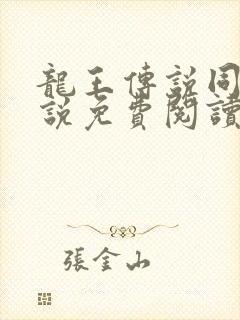 龍王傳說同
說免費閱讀
張金山